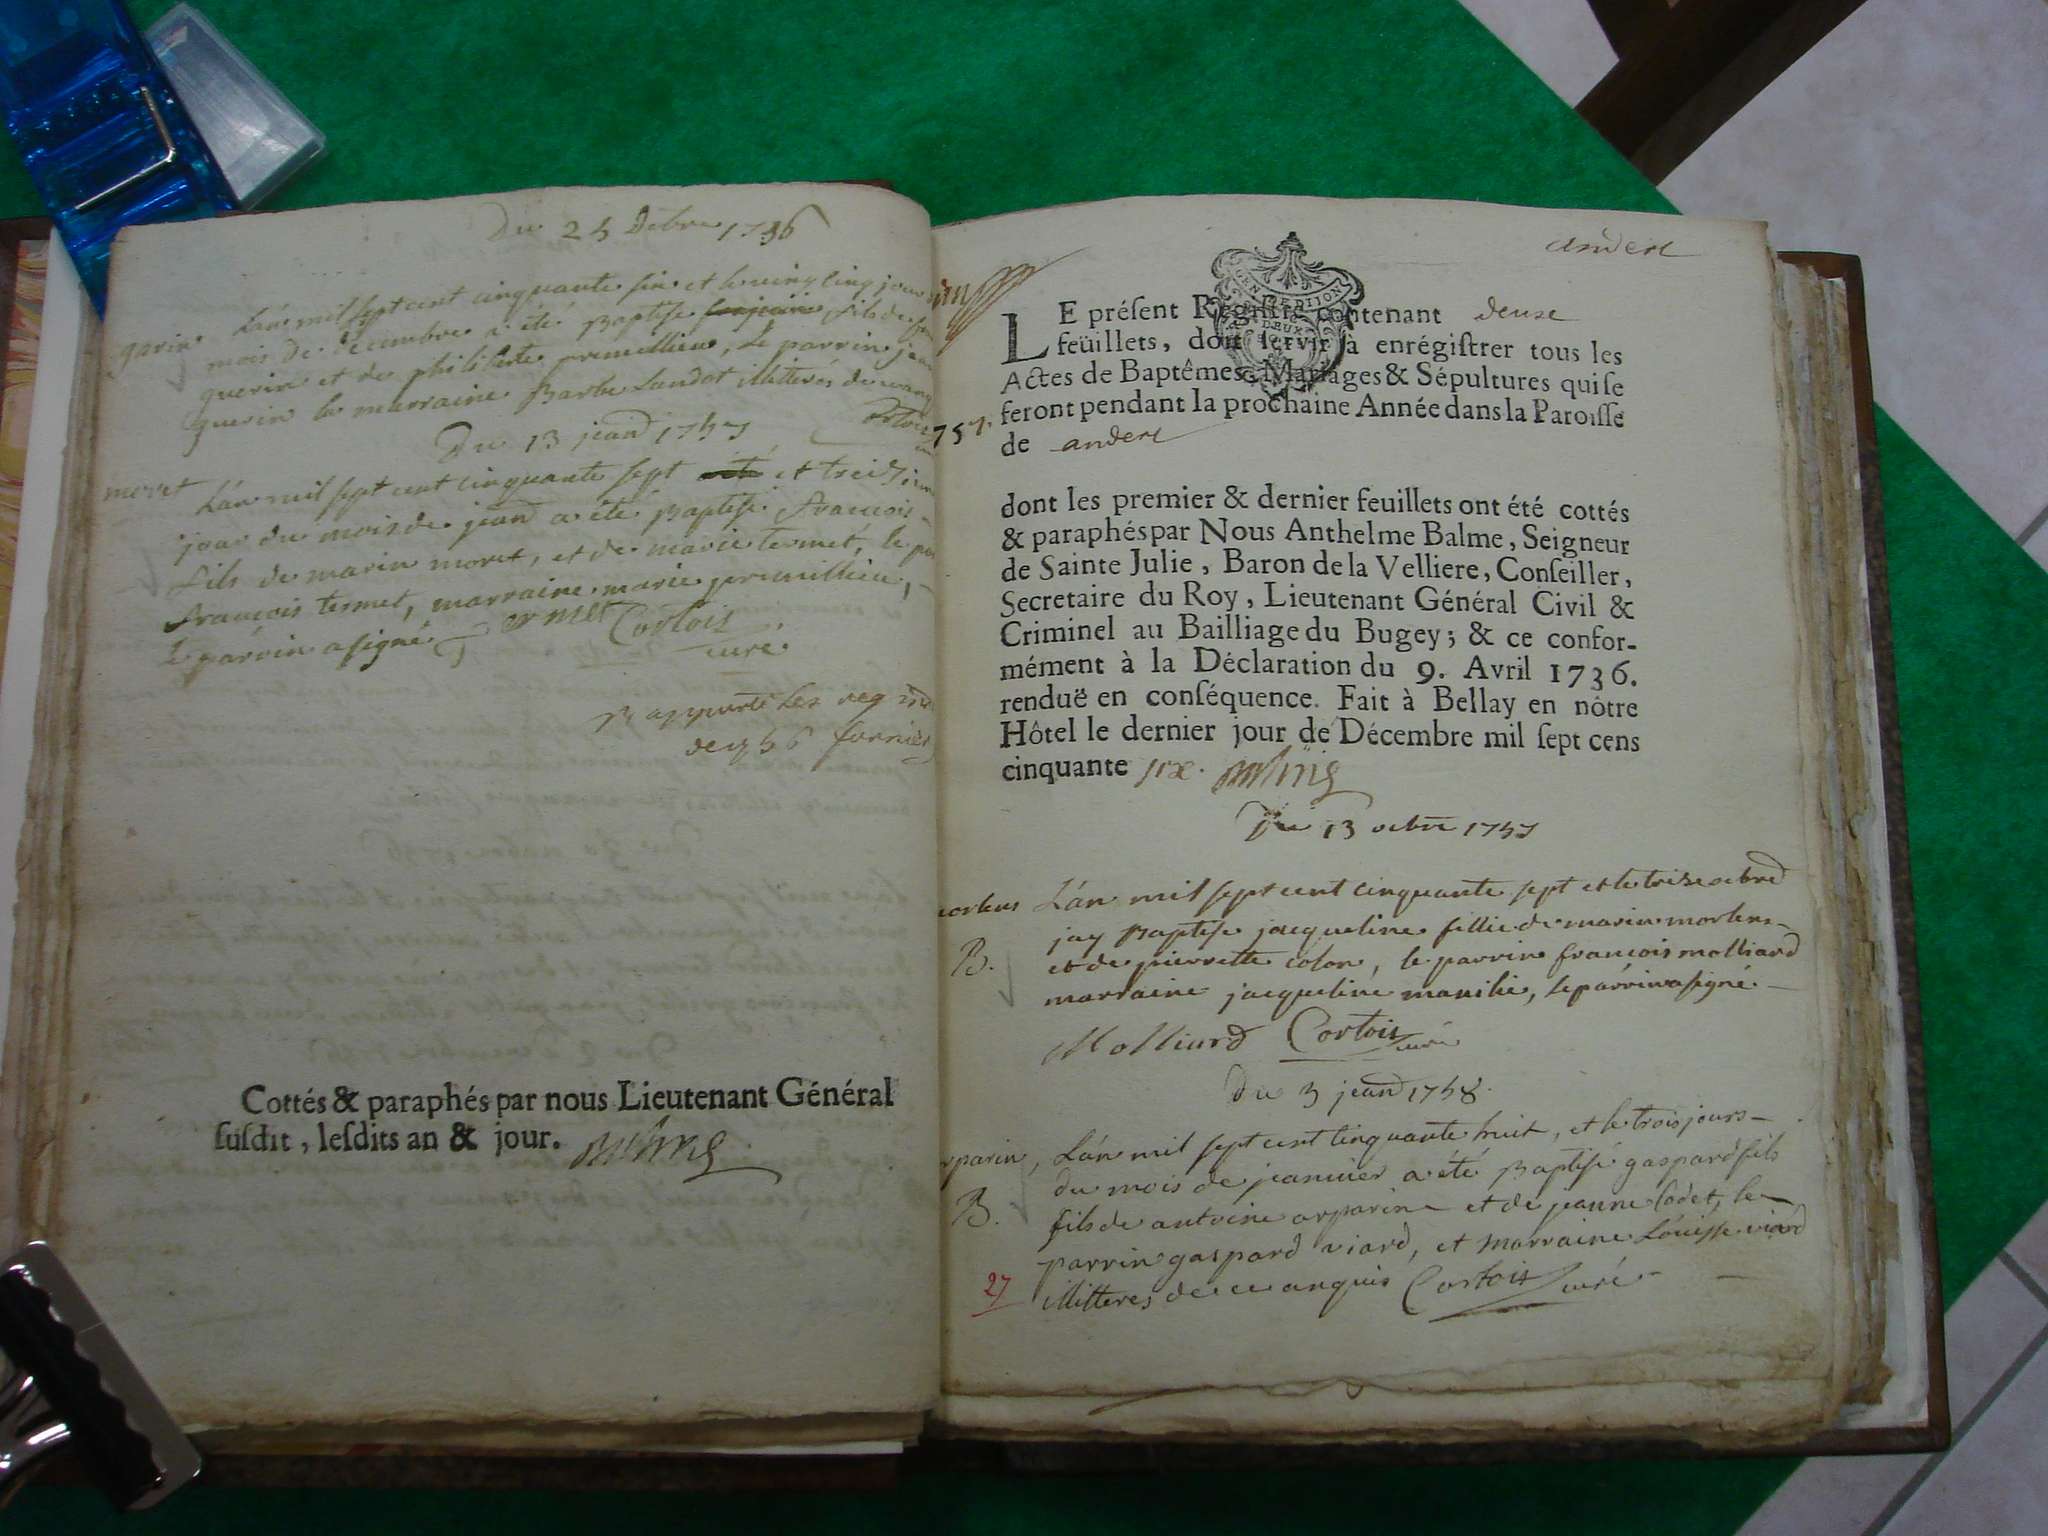 Du 25 Debre 1756
guerin Lán mil sept cent cinquante six et le vint cinq jour
mois de decembre a été Baptisé fils de
guerin et de philiberte premillieu, Le parrin jean
guerin la marraine Barbe Landot illiterés de ce enq
Du 13 jeanr 1757
moret Lán mil sept cent cinquante sept et treiziem
jour du mois de jeanr a été Baptisé francois
fils de marin moret, et de marie termet, le par
francois termet, marraine marie premillieu,
Le párrin a signé termet Cortois
curé
Rapporté les reg
de 1756 fornier
Cottés & paraphés par nous Lieutenant Général
susdit, lesdits an & jour.
andert
GEN. DE DIJON
DEUX
LE présent Registre contenant deuxe
feüillets, doit servir à enrégistrer tous les
Actes de Baptêmes, Mariages & Sépultures qui se
feront pendant la prochaine Année dans la Paroisse
757.
de andert
dont les premier & dernier feuillets ont été cottés
& paraphés par Nous Anthelme Balme, Seigneur
de Sainte Julie, Baron de la Velliere, Conseiller,
Secretaire du Roy, Lieutenant Général Civil &
Criminel au Bailliage du Bugey; & ce confor-
mément à la Déclaration du 9. Avril 1736.
renduë en conséquence. Fait à Bellay en nôtre
Hôtel le dernier jour de Décembre mil sept cens
cinquante six.
Du 13 octbre 1757
morlens Lán mil sept cent cinquante sept et le treize octbre
B. jay Baptisé jacqueline fillie de marin morlens
et de pierrette colon, le parrin francois molliard
marraine jacqueline manilie, le párrin a signé
Molliard Cortois curé
Du 3 jeanr 1758.
arparin, Lán mil sept cent cinquante huit, et le trois jours
du mois de jeanvier a été Baptisé gaspard fils
B. fils de antoine arparin et de jeanne Codet, le
parrin gaspard viard, et marraine Loüisse viard
27 illitteres de ce enquis Cortois curé